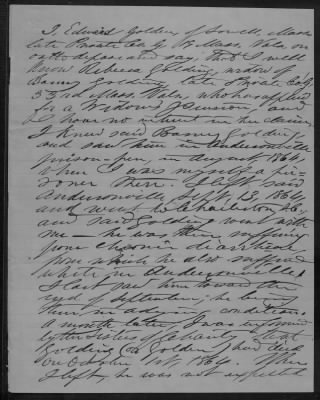 I, Edward Golden, of Lowell, Mass
late Private Co. G 17 Mass. Vols, on
oath depose and say, that I well
know Rebecca Golding, widow of
Barney Golding, late Private Co.
33rd Mass. Vols., who has applied
for a Widow's Pension, and
I have no interest in her claim,
I knew said Barney Golding,
and saw him in Andersonville
prison-pen, in August 1864,
when I was myself a pri-
soner there. I left said
Andersonville Sept. 13, 1864,
and went to Charleston, So.
and said Golding went with
me — he was then suffering
from chronic diarrhoea
from which he also suffered
while in Andersonville.
I last saw him toward the
end of September; he being
then in a dying condition.
A month later, I was informed
by the Sisters of Charity that
Golding (or Golden) had died
on October 1st 1864. When
I left, he was not expected